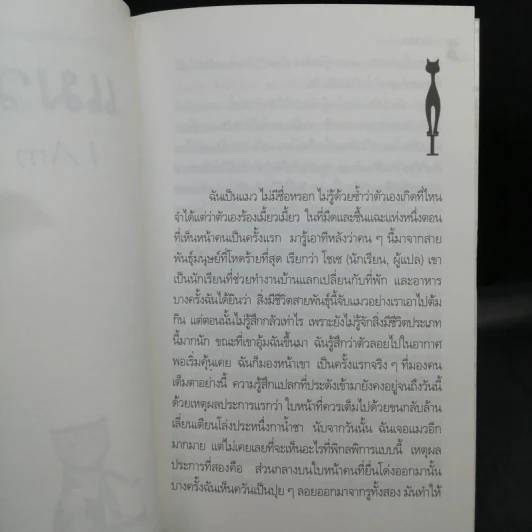 แมว
I Am
1
ฉันเป็นแมว ไม่มีชื่อหรอก ไม่รู้ด้วยซ้ำว่าตัวเองเกิดที่ไหน
จำได้แต่ว่าตัวเองร้องเมี้ยวเมี้ยว ในที่มืดและชื้นแฉะแห่งหนึ่งตอน
ที่เห็นหน้าคนเป็นครั้งแรก มารู้เอาทีหลังว่าคน ๆ นี้มาจากสาย
พันธุ์มนุษย์ที่โหดร้ายที่สุด เรียกว่า โชเซ (นักเรียน, ผู้แปล) เขา
เป็นนักเรียนที่ช่วยทำงานบ้านแลกเปลี่ยนกับที่พัก และอาหาร
บางครั้งฉันได้ยินว่า สิ่งมีชีวิตสายพันธุ์นี้จับแมวอย่างเราเอาไปต้ม
กิน แต่ตอนนั้นไม่รู้สึกกลัวเท่าไร เพราะยังไม่รู้จักสิ่งมีชีวิตประเภท
นี้มากนัก ขณะที่เขาอุ้มฉันขึ้นมา ฉันรู้สึกว่าตัวลอยไปในอากาศ
พอเริ่มคุ้นเคย ฉันก็มองหน้าเขา เป็นครั้งแรกจริง ๆ ที่มองคน
เต็มตาอย่างนี้ ความรู้สึกแปลกที่ประดังเข้ามายังคงอยู่จนถึงวันนี้
ด้วยเหตุผลประการแรกว่า ใบหน้าที่ควรเต็มไปด้วยขนกลับล้าน
เลี่ยนเตียนโล่งประหนึ่งกาน้ำชา นับจากวันนั้น ฉันเจอแมวอีก
มากมาย แต่ไม่เคยเลยที่จะเห็นอะไรที่พิกลพิการแบบนี้ เหตุผล
ประการที่สองคือ ส่วนกลางบนใบหน้าคนที่ยื่นโด่งออกมานั้น
บางครั้งฉันเห็นควันเป็นปุย ๆ ลอยออกมาจากรูทั้งสอง มันทำให้